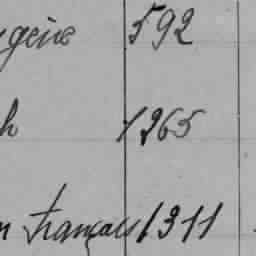 gène 592
h 1265
n français 1311